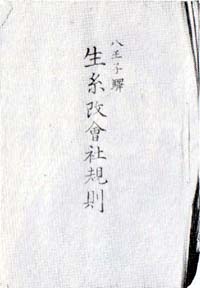 八王子驛
生糸改會社規則